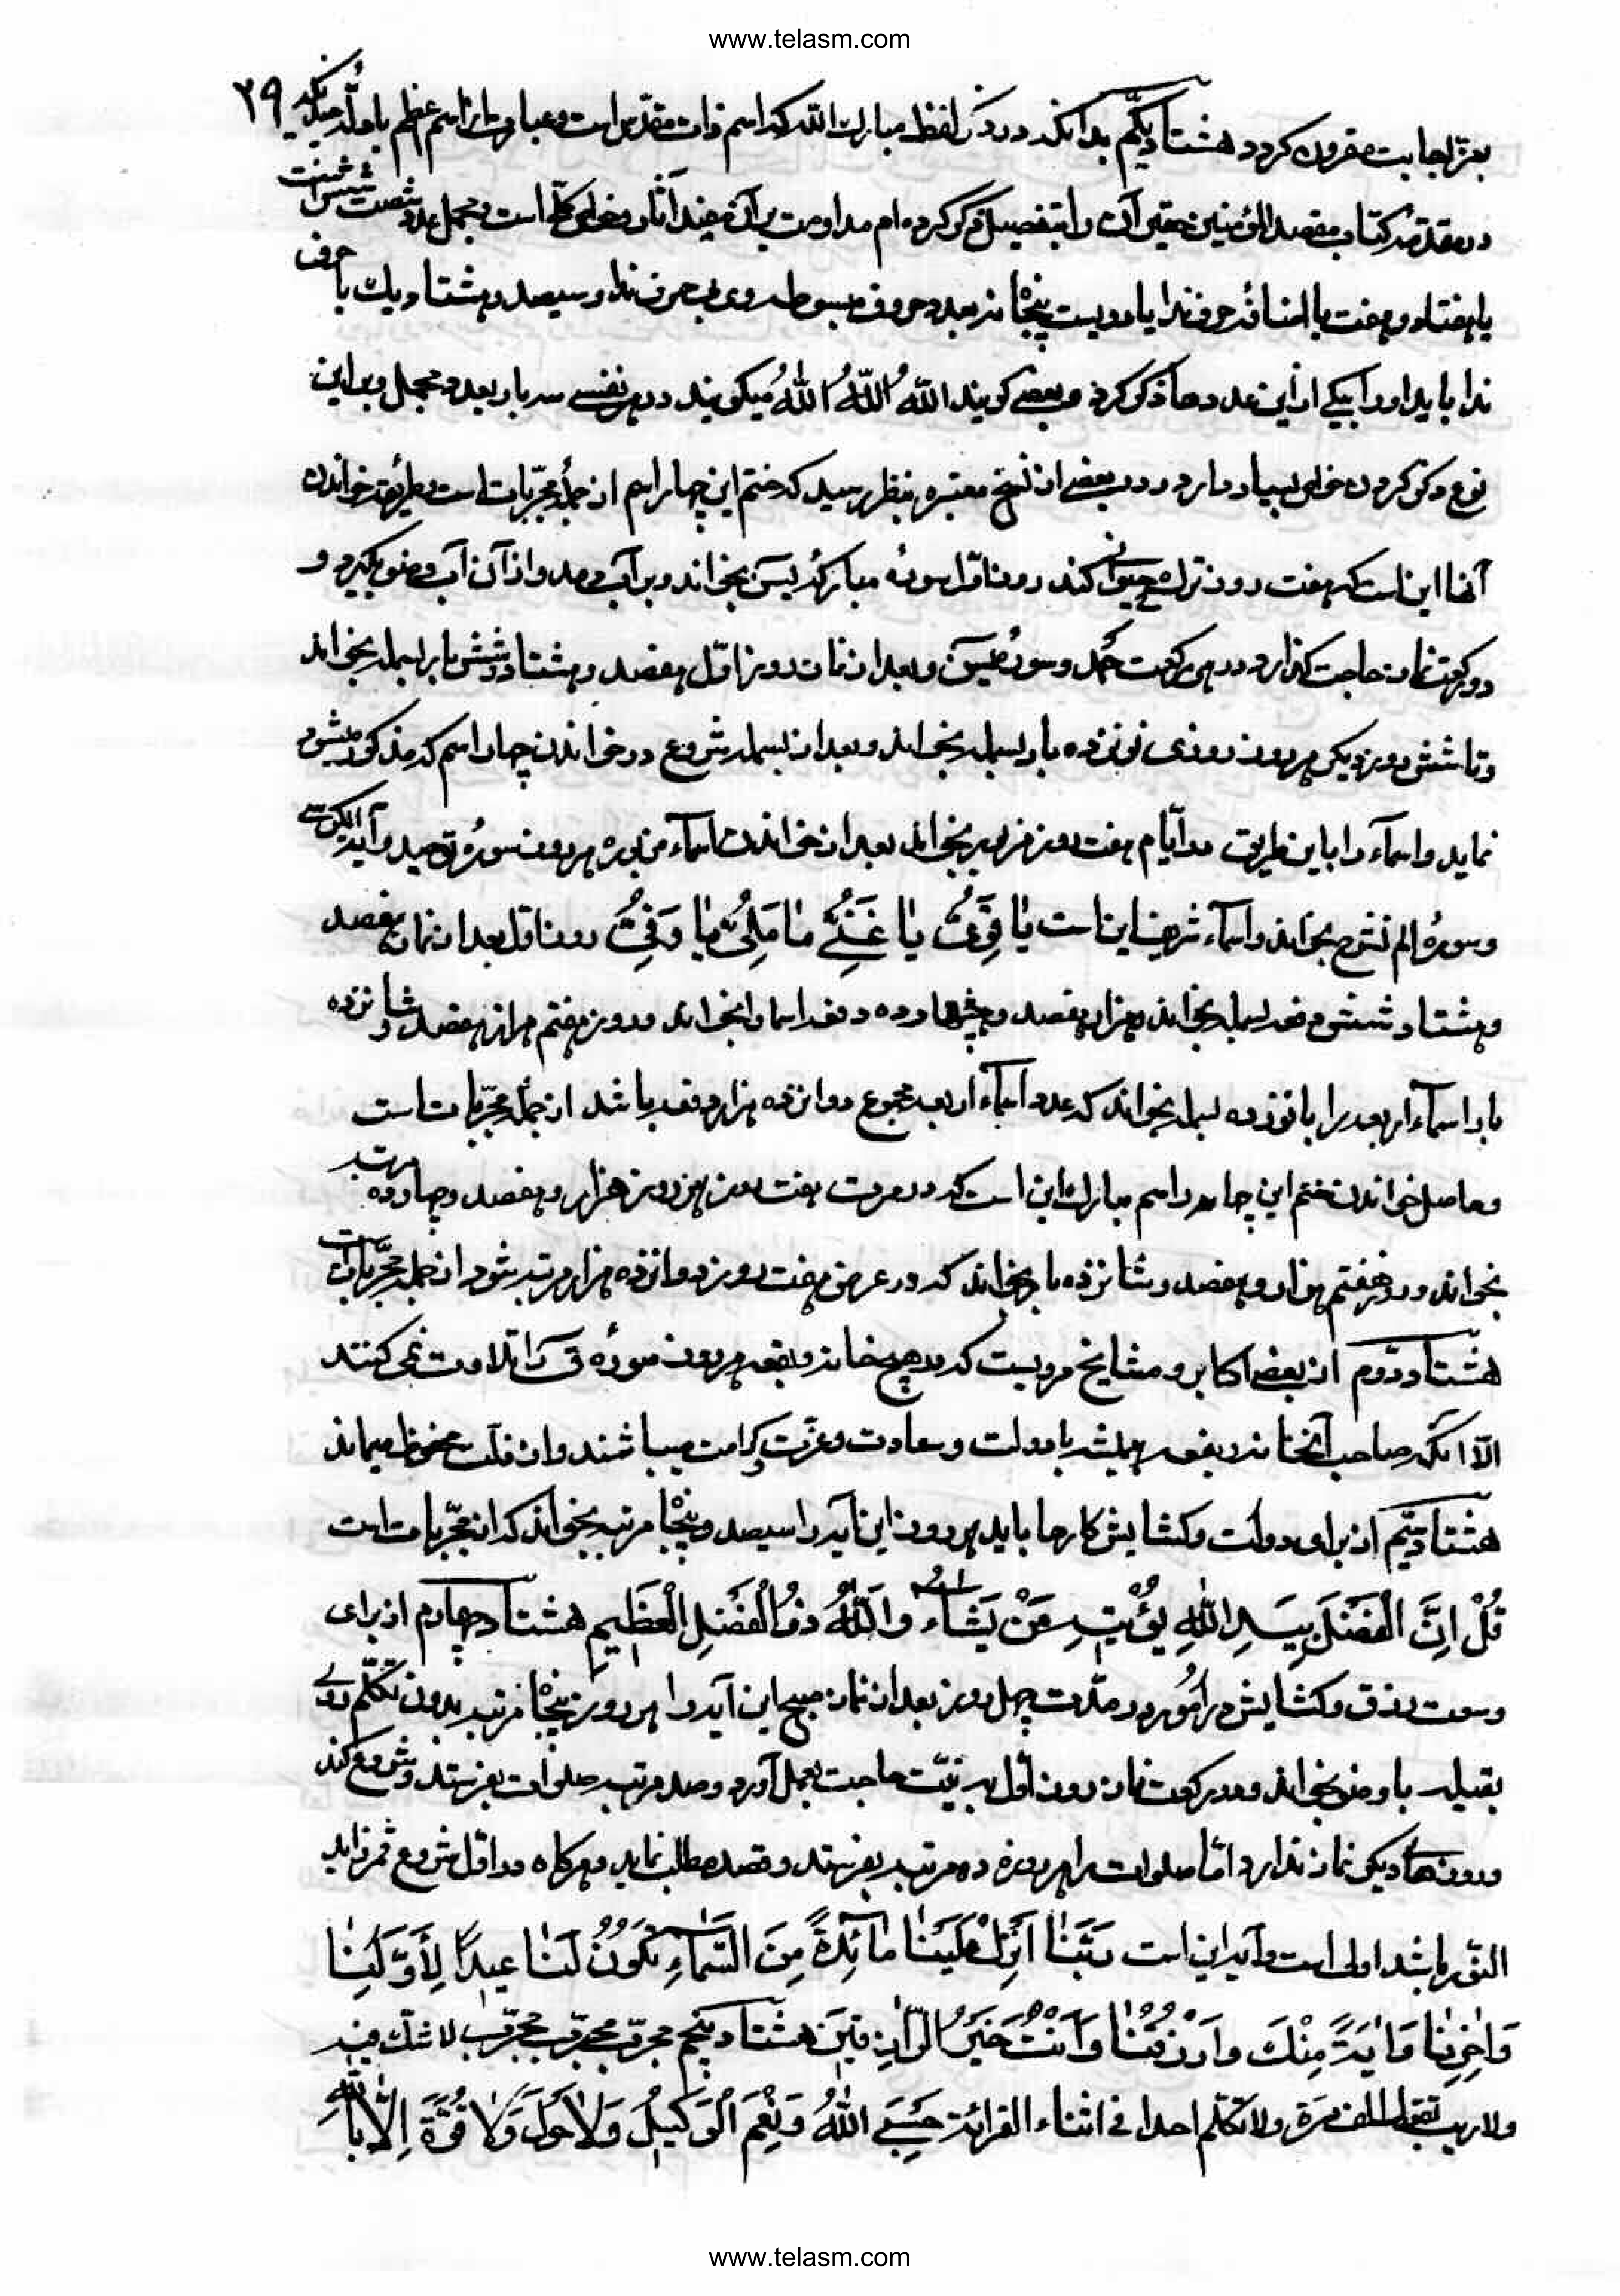 www.telasm.com
۲۹
بعزّ اجابت مقرون کردد هشتاد یکّم بدانکه در ذکر لفظ مبارک الله که اسم ذات مقدّس است و عبارت از اسم اعظم
در مقدّمه کتاب مقصد المؤمنین تحقیق آن را بتفصیل ذکر کرده‌ام مداومت بر آن مفید آثار و خواص کلّی است و مجمل عدد شصت شش است
یا هفتاد و هفت با اضافه حرف ندا یا دویست پنجاه نه بعدد حروف مبسوطه وی بی حرف ندا و سیصد و هشتاد و یک با حرف
ندا باید او را بیکی از این عددها ذکر کرد و بعضی کویند اللّهُ اللّهُ اللّهُ میکویند در هر نفسی سه بار بعدد مجمل و بر این
نوع ذکر کردن خواص بسیار دارد و در بعضی از نسخ معتبره بنظر رسید که ختم این چهار اسم از جملهٔ مجرّبات است و طریقه خواندن
آنها این است که هفت روز ترک حیوانی کند روز اوّل سورهٔ مبارکهٔ یسن بخواند و بر آب دمد و از آن آب وضو بگیرد و
دو رکعت نماز حاجت گذارد در هر رکعت حمد و سورهٔ یسن و بعد از نماز روز اوّل هفصد و هشتاد و شش بار بسمله بخواند
و تا شش روز دیکر هر روز روزی نوزده بار بسمله بخواند و بعد از بسمله شروع در خواندن چهار اسم که مذکور میشود
نماید و اسماء را باین طریق در ایّام هفت روز مزبور بخواند بعد از خواندن اسماء مزبوره هر روز سورهٔ توحید و آیة الکرسی
و سورهٔ الم نشرح بخواند و اسماء شریف این است یا قَوِیُّ یا غَنِیُّ یا مَلِیُّ یا وَفِیُّ روز اول بعد از نماز هفصد
و هشتاد و شش دفعه بسمله بخواند و هزار هفصد و چهارده دفعه اسما را بخواند و روز هفتم هزار هفصد شانزده
بار اسماء اربعه را با نوزده بسمله بخواند که عدد اسماء اربعه مجموع دوازده هزار دفعه باشد از جمله مجرّبات است
و حاصل خواندن ختم این چهار اسم مبارک این است که در مدت هفت روز هر روز هزار و هفصد و چهارده مرتبه
بخواند و روز هفتم هزار و هفصد و شانزده بار بخواند که در عرض هفت روز دوازده هزار مرتبه شود از جمله مجرّبات است
هشتاد و دوم از بعضی اکابر و مشایخ مرویست که در هیچ خانه و بقعه هر روز سورهٔ ق را تلاوت نمی کنند
الّا انکه صاحب آنخانه و بقعه همیشه با دولت و سعادت و عزّت و کرامت میباشند و از فلاکت محفوظ میماند
هشتاد سیّم از برای دولت و کشایش کارها باید هر روز این آیه را سیصد و پنجاه مرتبه بخواند که از مجرّبات است
قُلْ اِنَّ الْفَضْلَ بِیَدِ اللّٰهِ یُؤْتِیهِ مَنْ یَشَاءُ وَاللّٰهُ ذُو الْفَضْلِ الْعَظِیمِ هشتاد چهارم از برای
وسعت رزق و کشایش در امور در مدّت چهل روز بعد از نماز صبح این آیه را هر روز پنجاه مرتبه بدون تکلّم روی
بقبله با وضو بخواند و دو رکعت نماز روز اول به نیّت حاجت بعمل آورد و صد مرتبه صلوات بفرستد و شروع کند
و روزهای دیکر نماز ندارد امّا صلوات را هر روزه ده مرتبه بفرستد و قصد مطلب نماید و هر کاه در اوّل شروع قمر زاید
النّور باشد اولی است و آیه این است رَبَّنَا اَنْزِلْ عَلَیْنَا مائِدَةً مِنَ السَّماءِ تَکُونُ لَنَا عِیداً لِأَوَّلِنَا
وَآخِرِنَا وَآیَةً مِنْكَ وَارْزُقْنَا وَاَنْتَ خَیْرُ الرّازِقِینَ هشتاد پنجم مجرّب مجرّب مجرّب لا شكّ فیه
ولا ریب تقرء الف مرّة ولا تکلّم احدا فی اثناء القرائة حَسْبِیَ اللّٰهُ وَنِعْمَ الْوَکِیلُ وَلا حَوْلَ وَلا قُوَّةَ اِلّا بِاللّٰهِ
www.telasm.com